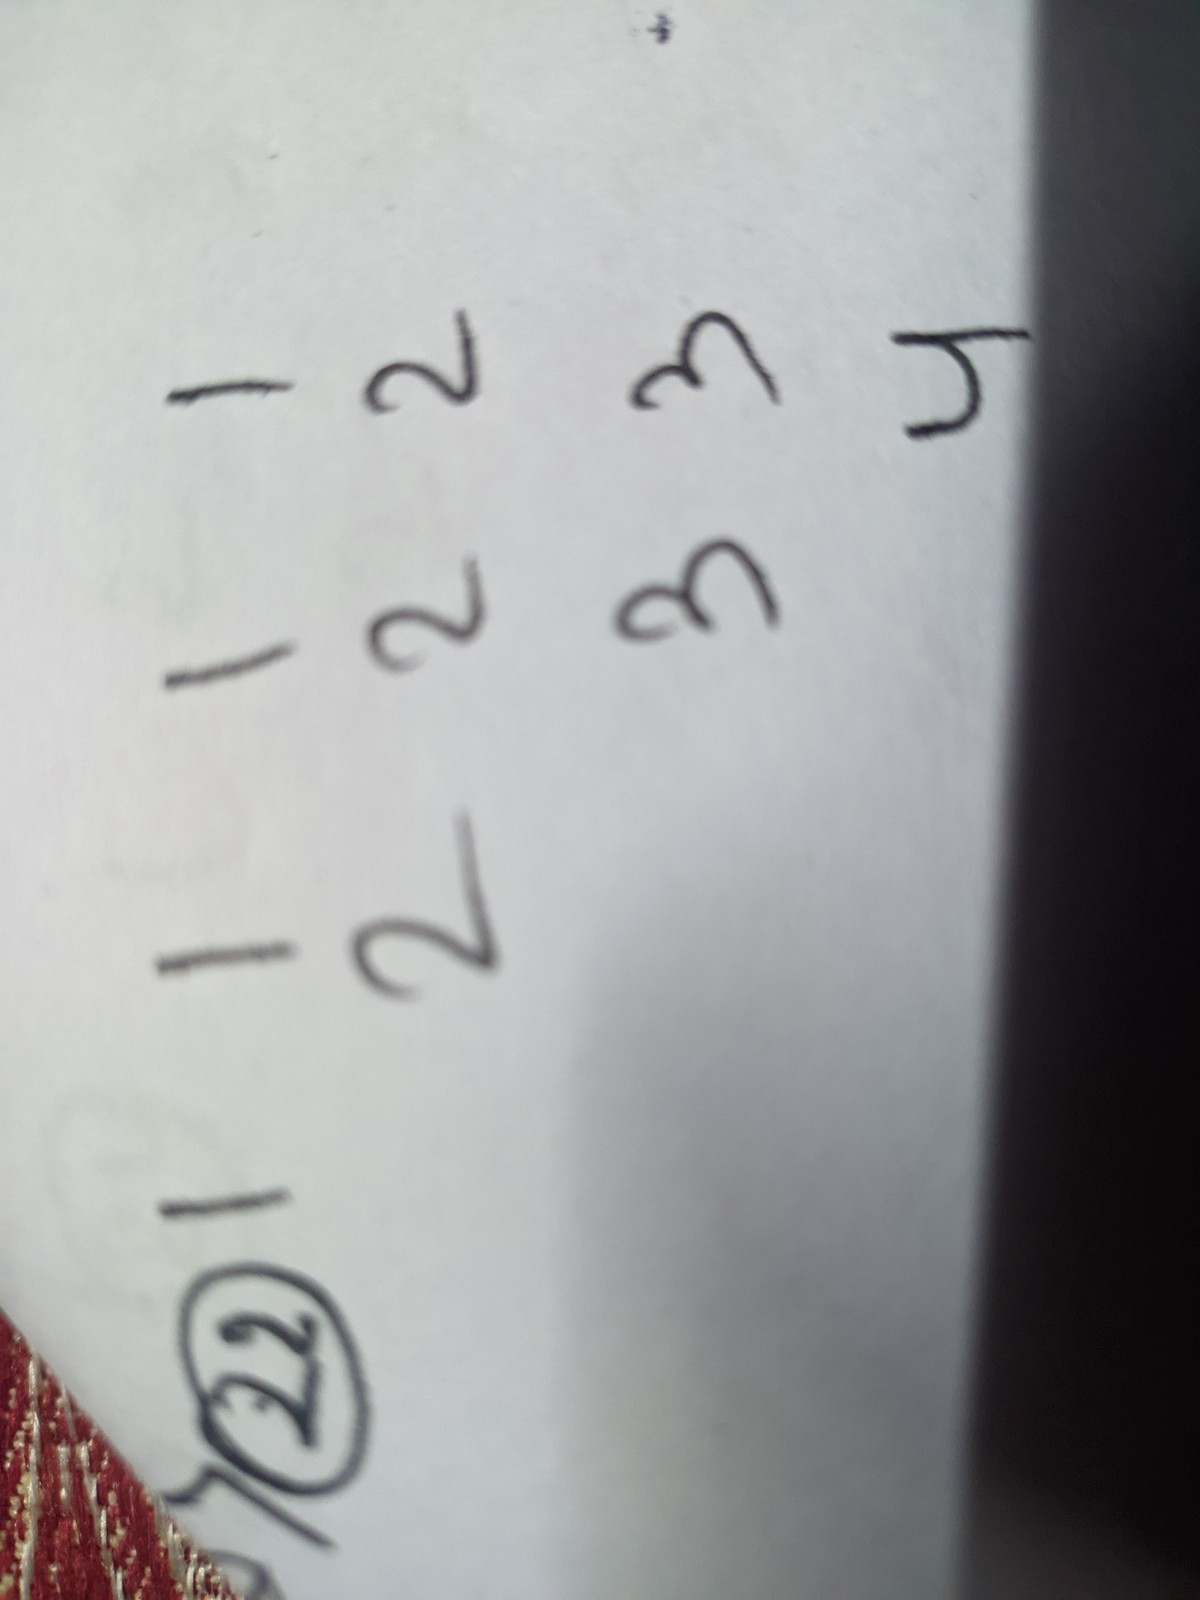 22 1 1 1 1
2 2 2
3 3
4